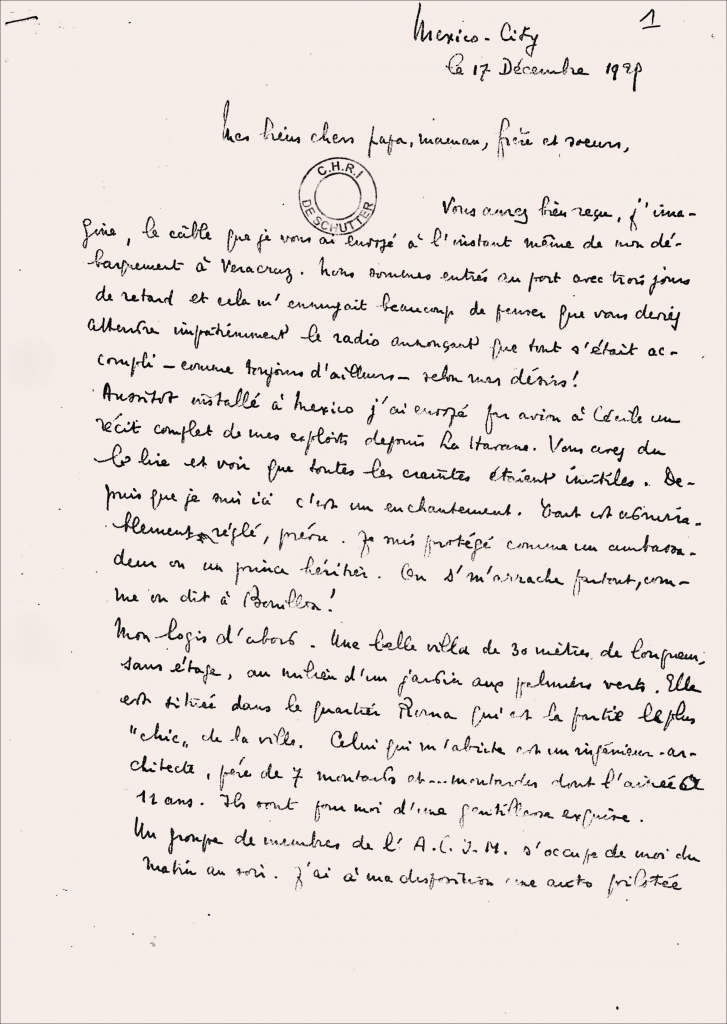 1
Mexico-City
le 17 Décembre 1929
Mes biens chers papa, maman, frère et soeurs,
C.H.R.I
DE SCHUTTER
Vous aurez bien reçu, j'ima-
gine, le câble que je vous ai envoyé à l'instant même de mon dé-
barquement à Veracruz. Nous sommes entrés au port avec trois jours
de retard et cela m'ennuyait beaucoup de penser que vous deviez
attendre impatiemment le radio annonçant que tout s'était ac-
compli – comme toujours d'ailleurs – selon mes désirs!
Aussitot installé à Mexico j'ai envoyé par avion à Cécile un
récit complet de mes exploits depuis La Havane. Vous avez du
le lire et voir que toutes les craintes étaient inutiles. De-
puis que je suis ici c'est un enchantement. Tout est admira-
blement réglé, prévu. Je suis protégé comme un ambassa-
deur ou un prince héritier. On s'm'arrache partout, com-
me on dit à Bouillon!
Mon logis d'abord. Une belle villa de 30 mètres de longueur,
sans étage, au milieu d'un jardin aux palmiers verts. Elle
est située dans le quartier Roma qui est la partie la plus
"chic" de la ville. Celui qui m'abrite est un ingénieur-ar-
chitecte, père de 7 moutards et...moutardes dont l'ainée a
11 ans. Ils sont pour moi d'une gentillesse exquise.
Un groupe de membres de l'A.C.J.M. s'occupe de moi du
matin au soir. J'ai à ma disposition une auto pilotée